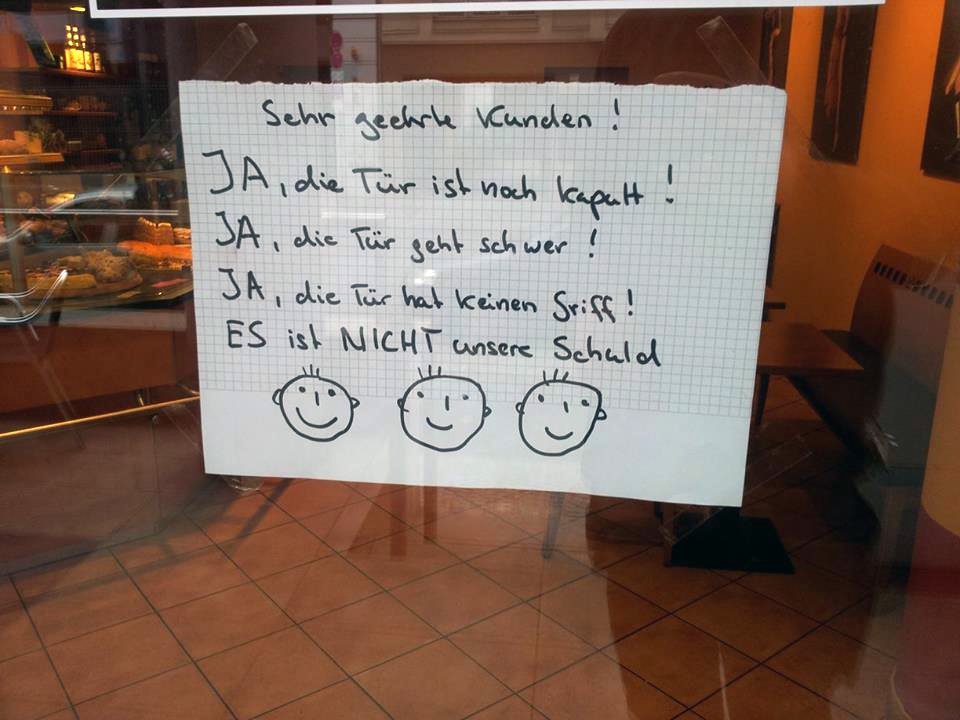 Sehr geehrte Kunden!
JA, die Tür ist noch kaputt!
JA, die Tür geht schwer!
JA, die Tür hat keinen Griff!
ES ist NICHT unsere Schuld